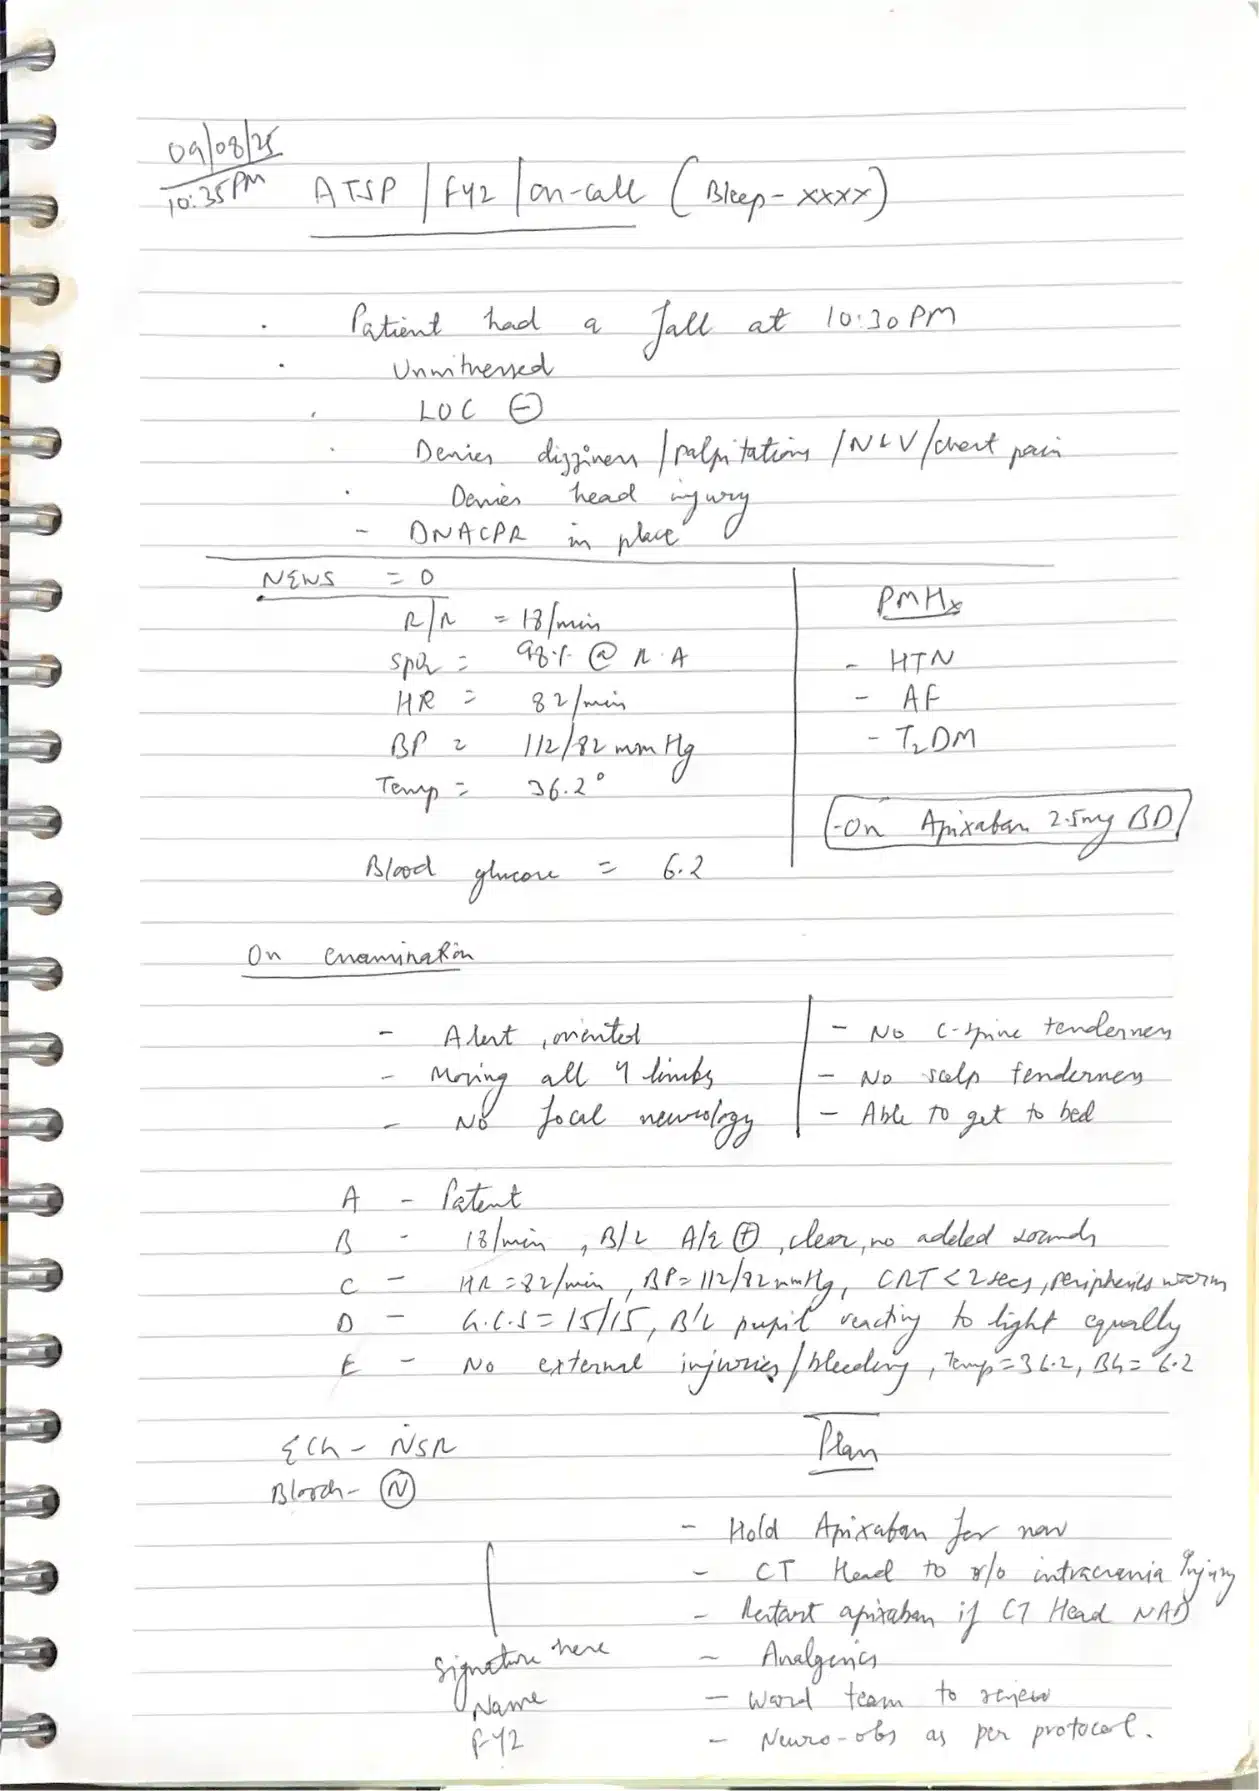 09/08/25
10:35PM
ATSP / FY2 / on-call (Bleep - xxxx)
· Patient had a fall at 10:30 PM
· Unwitnessed
· LOC ⊖
· Denies dizziness / palpitations / N&V / chest pain
· Denies head injury
- DNACPR in place
NEWS = 0
R/R = 18/min
SpO2 = 98% @ R.A
HR = 82/min
BP = 112/82 mmHg
Temp = 36.2°
Blood glucose = 6.2
PMHx
- HTN
- AF
- T2DM
- On Apixaban 2.5mg BD
On examination
- Alert, oriented
- Moving all 4 limbs
- No focal neurology
- No C-spine tenderness
- No scalp tenderness
- Able to get to bed
A - Patent
B - 18/min, B/L A/E ⊕, clear, no added sounds
C - HR = 82/min, BP = 112/82 mmHg, CRT < 2 secs, peripheries warm
D - G.C.S = 15/15, B/L pupil reacting to light equally
E - No external injuries / bleeding, Temp = 36.2, BG = 6.2
ECG - NSR
Bloods - Ⓝ
Signature here
Name
FY2
Plan
- Hold Apixaban for now
- CT Head to r/o intracrania Injury
- Restart apixaban if CT Head NAD
- Analgesics
- Ward team to review
- Neuro-obs as per protocol.